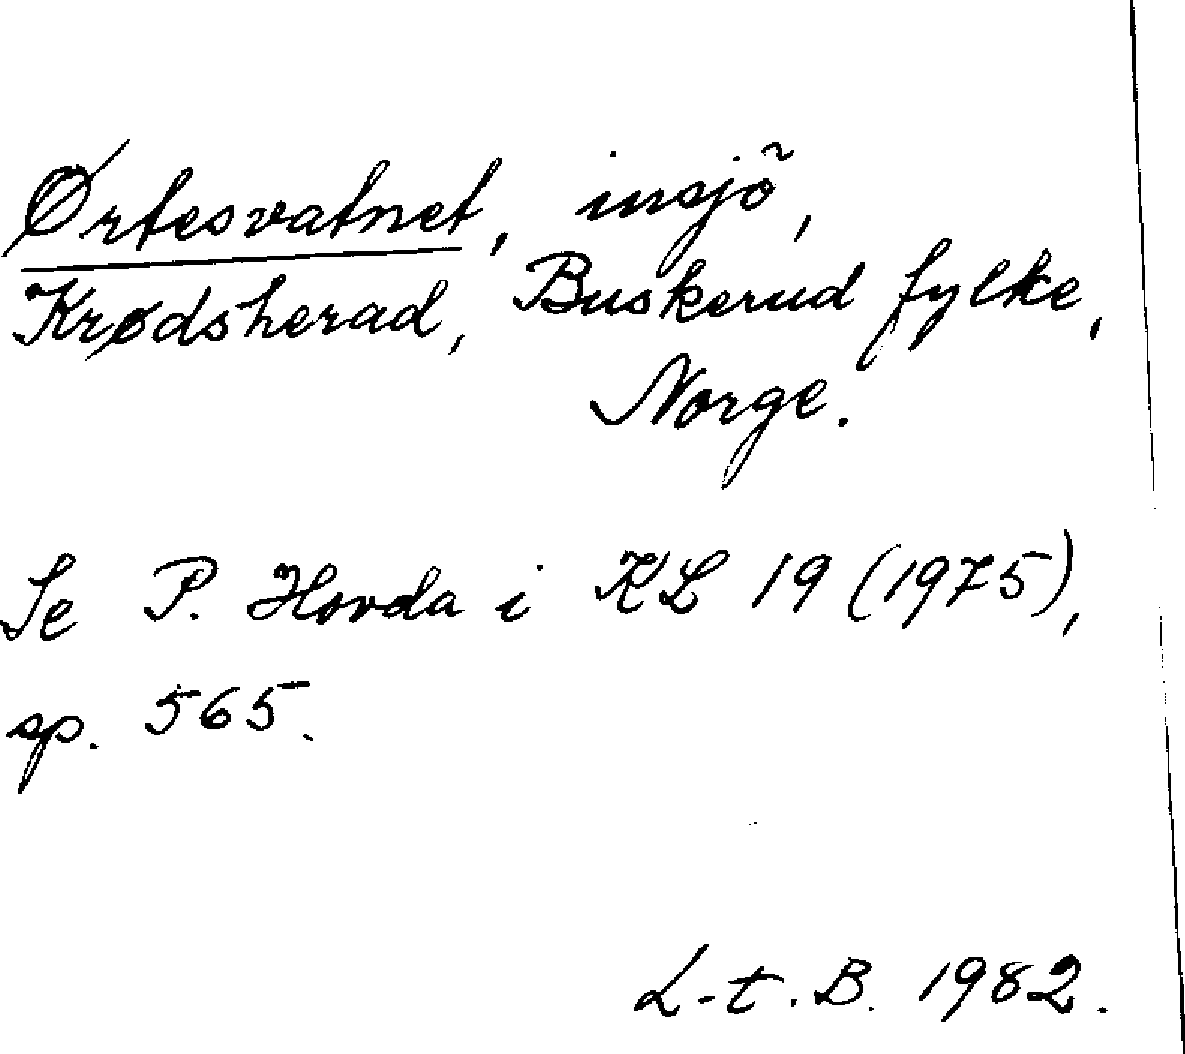 Ørtesvatnet, insjö,
Krødsherad, Buskerud fylke,
Norge.
Se P. Hovda i KL 19 (1975),
sp. 565.
L-t. B. 1982.